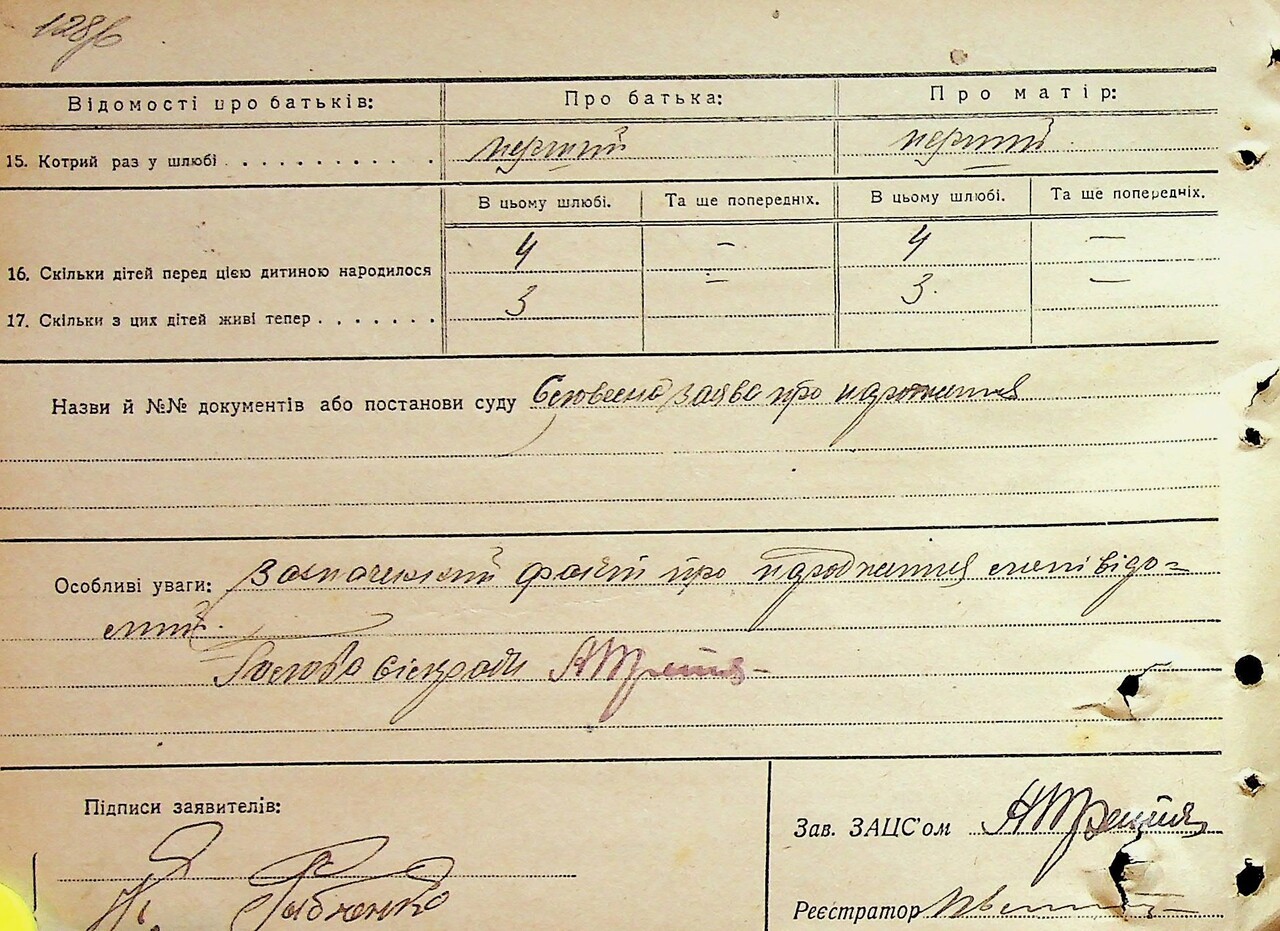 128 б
Відомості про батьків: Про батька: Про матір:
15. Котрий раз у шлюбі . . . . . . . . . . . перший перший
В цьому шлюбі. Та ще попередніх. В цьому шлюбі. Та ще попередніх.
16. Скільки дітей перед цією дитиною народилося 4 – 4 –
17. Скільки з цих дітей живі тепер . . . . . . . 3 – 3. –
Назви й №№ документів або постанови суду Словесна заява про народження
Особливі уваги: Зазначений факт про народження мені відо=
мий.
Голова сільради
Підписи заявителів:
Зав. ЗАЦС'ом
Реєстратор